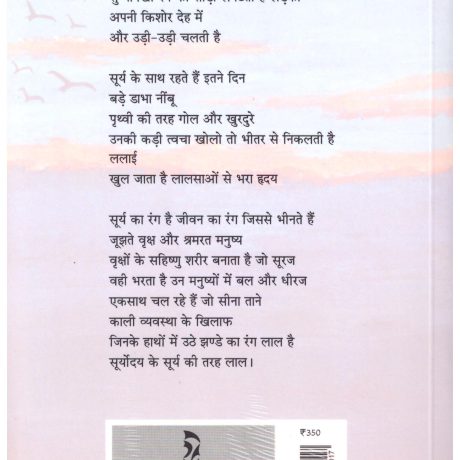 अपनी किशोर देह में
और उड़ी-उड़ी चलती है
सूर्य के साथ रहते हैं इतने दिन
बड़े डाभा नींबू
पृथ्वी की तरह गोल और खुरदुरे
उनकी कड़ी त्वचा खोलो तो भीतर से निकलती है
ललाई
खुल जाता है लालसाओं से भरा हृदय
सूर्य का रंग है जीवन का रंग जिससे भीनते हैं
जूझते वृक्ष और श्रमरत मनुष्य
वृक्षों के सहिष्णु शरीर बनाता है जो सूरज
वही भरता है उन मनुष्यों में बल और धीरज
एकसाथ चल रहे हैं जो सीना ताने
काली व्यवस्था के खिलाफ
जिनके हाथों में उठे झण्डे का रंग लाल है
सूर्योदय के सूर्य की तरह लाल।
₹350